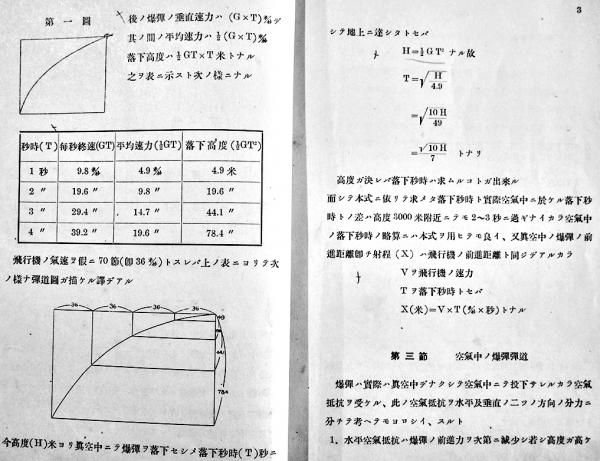 第一圖
後ノ爆彈ノ垂直速力ハ (G×T) 米/秒 デ
其ノ間ノ平均速力ハ ½ (G×T) 米/秒
落下高度ハ ½ GT×T 米トナル
之ヲ表ニ示スト次ノ様ニナル
秒時(T) 每秒終速(GT) 平均速力(½GT) 落下高度(½GT²)
1 秒 9.8 米/秒 4.9 米/秒 4.9 米
2 〃 19.6 〃 9.8 〃 19.6 〃
3 〃 29.4 〃 14.7 〃 44.1 〃
4 〃 39.2 〃 19.6 〃 78.4 〃
飛行機ノ氣速ヲ假ニ 70 節(卽 36 米/秒) トスレバ上ノ表ニヨリテ次
ノ様ナ彈道圖ガ描ケル譯デアル
36 36 36 36
4.9
19.6
44.1
78.4
今高度(H)米ヨリ眞空中ニテ爆彈ヲ落下セシメ落下秒時(T)秒ニ
3
シテ地上ニ達シタトセバ
H=½GT² ナル故
T=√H/4.9
=√10H/49
=√10H/7 トナリ
高度ガ決レバ落下秒時ハ求ムルコトガ出來ル
而シテ本式ニ依リテ求メタ落下秒時ト實際空氣中ニ於ケル落下秒
時トノ差ハ高度 3000 米附近ニテモ 2〜3 秒ニ過ギナイカラ空氣中
ノ落下秒時ノ略算ニハ本式ヲ用ヒテモ良イ、又眞空中ノ爆彈ノ前
進距離卽チ射程 (X) ハ飛行機ノ前進距離ト同ジデアルカラ
Vヲ飛行機ノ速力
Tヲ落下秒時トセバ
X(米)=V×T(米/秒×秒)トナル
第三節 空氣中ノ爆彈彈道
爆彈ハ實際ハ眞空中デナクシテ空氣中ニテ投下サレルカラ空氣
抵抗ヲ受ケル、此ノ空氣抵抗ヲ水平及垂直ノ二ツノ方向ノ分力ニ
分チテ考ヘテモヨロシイ、スルト
1. 水平空氣抵抗ハ爆彈ノ前進力ヲ次第ニ減少シ若シ高度ガ高ケ